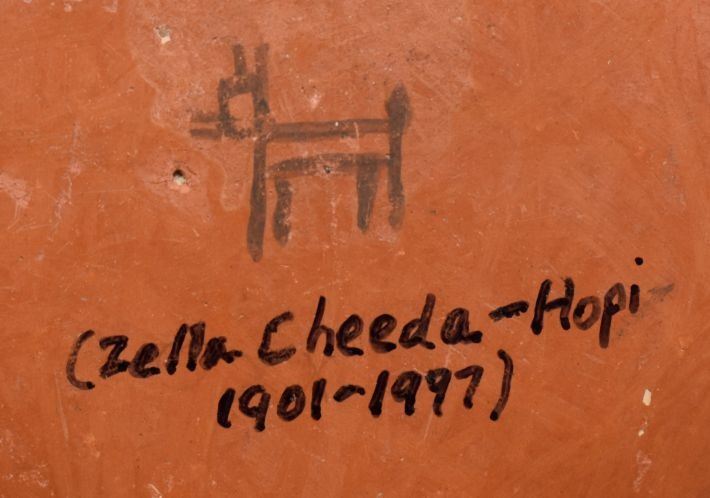 (Zella Cheeda-Hopi
1901-1997)